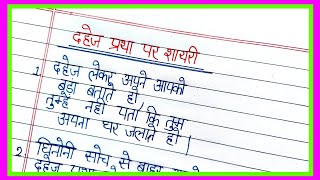 दहेज प्रथा पर शायरी
1. दहेज लेकर अपने आपको
बड़ा बताते हो
तुम्हें नहीं पता कि तुम
अपना घर जलाते हो।
2. घिनौनी सोच से बाहर
दहेज